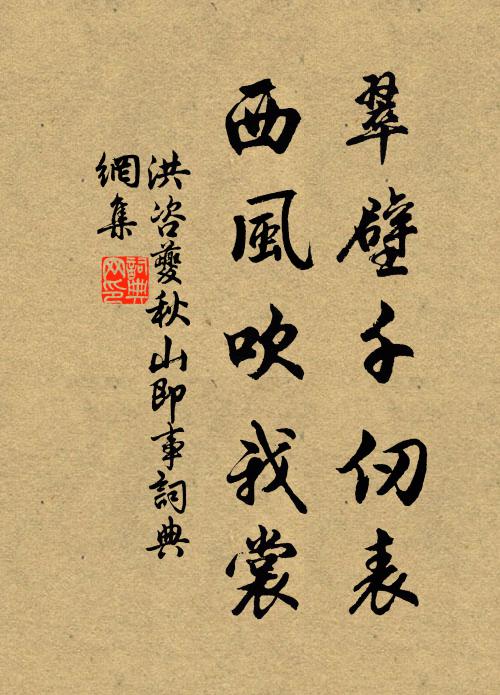 翠壁千仞表
西風吹我裳
洪咨夔秋山即事詞典
網集
詞典
网印